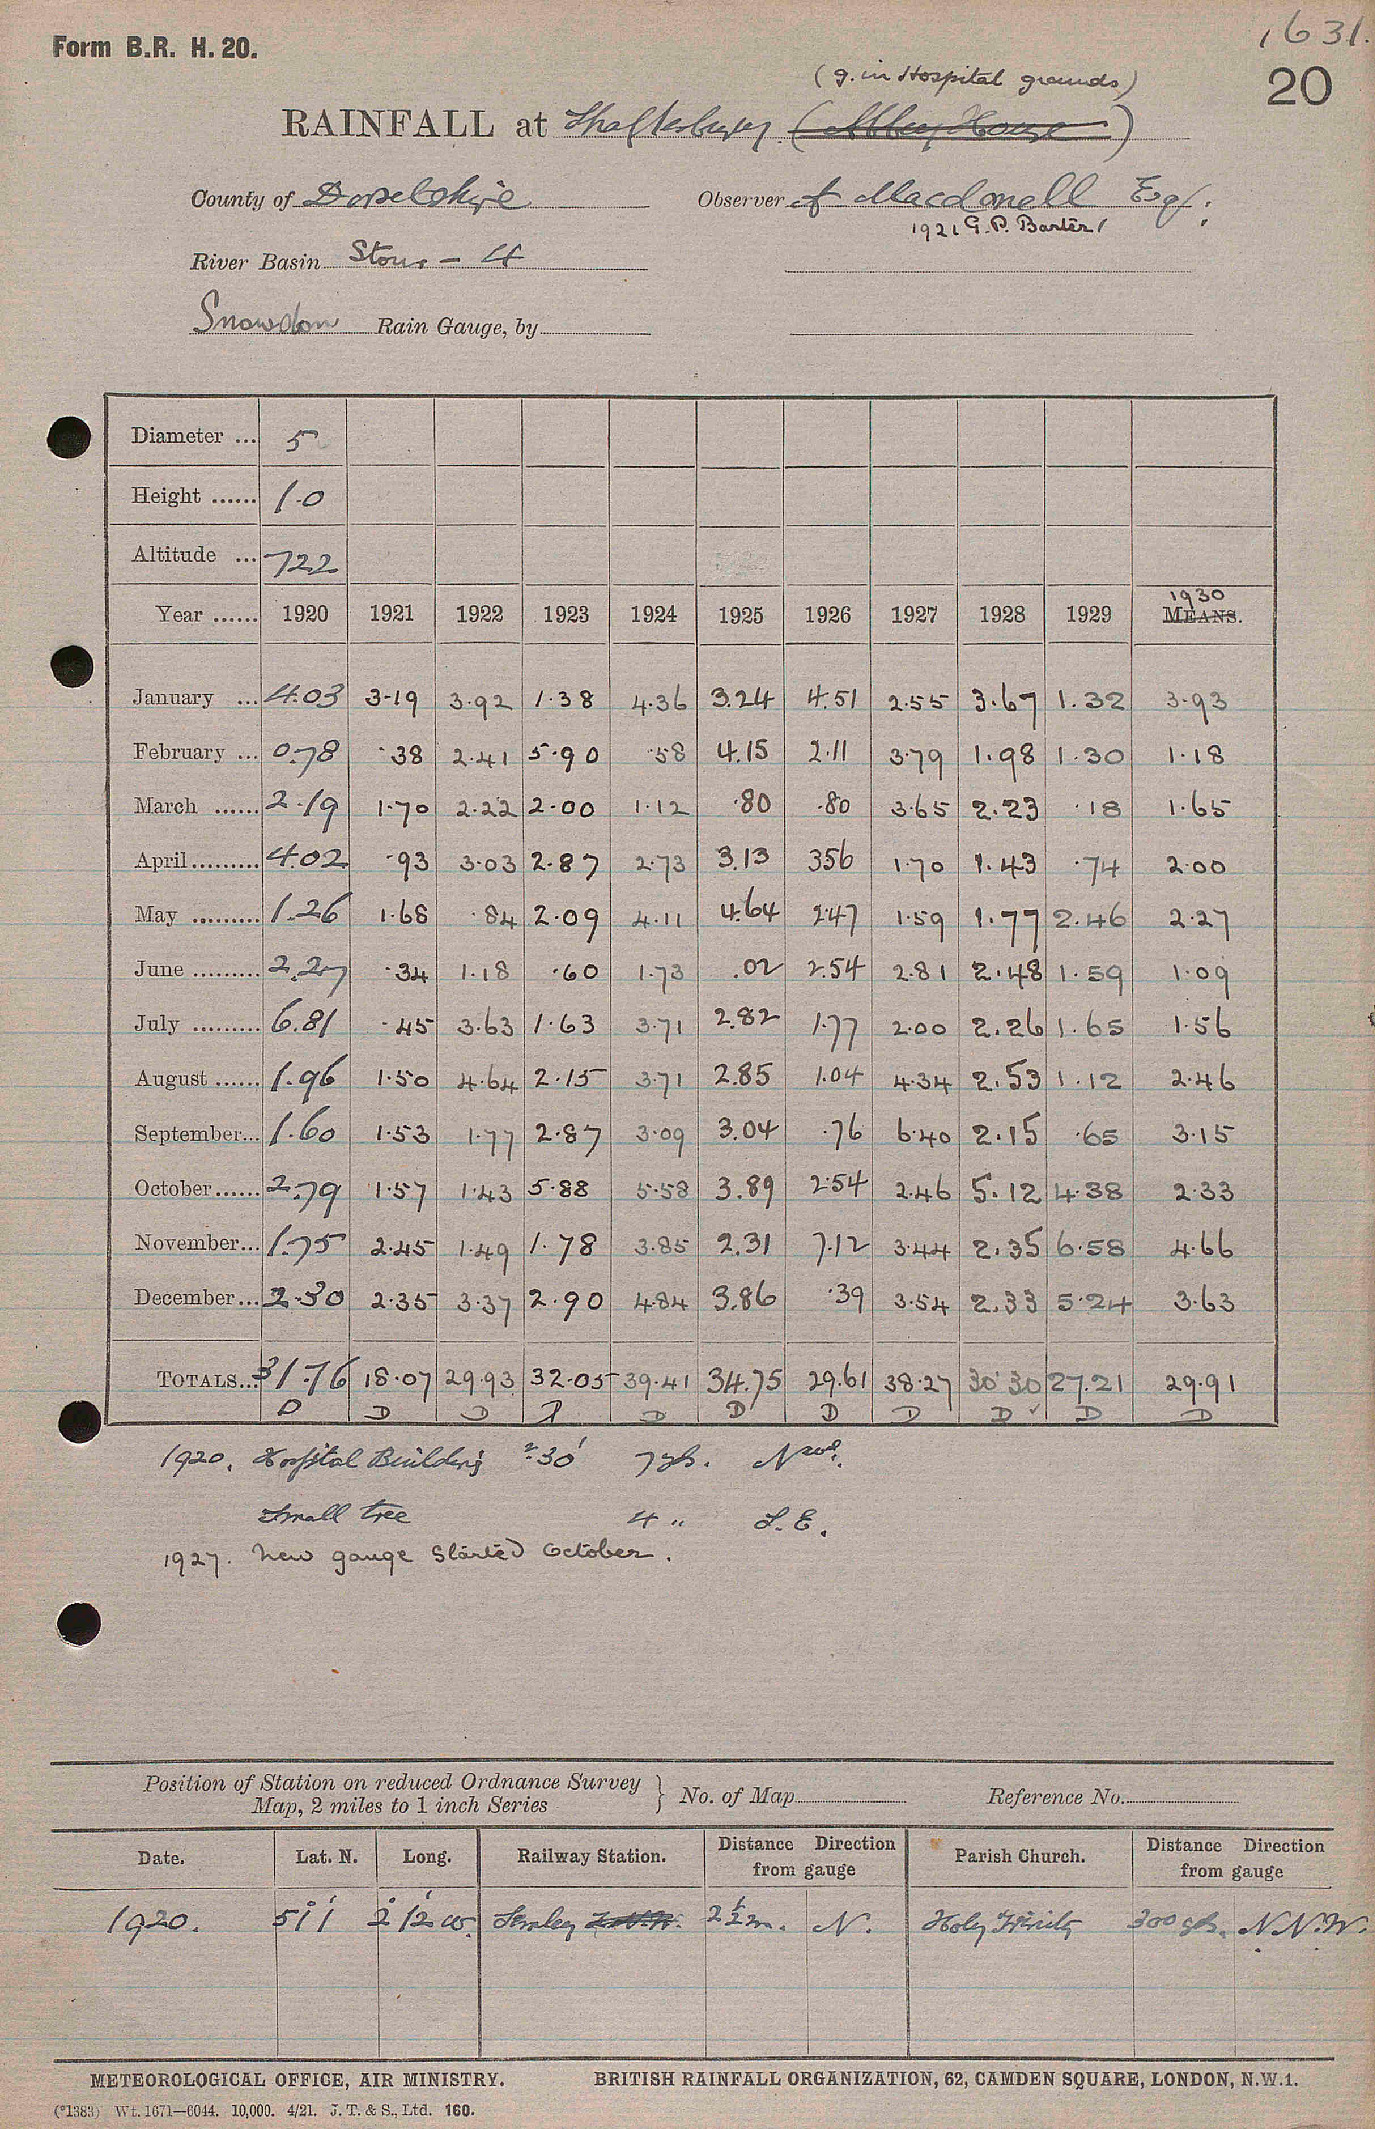 1631.
Form B.R. H. 20.
20
(g. in Hospital grounds)
RAINFALL at Shaftesbury. (Abbey House)
County of Dorsetshire Observer A Macdonell Esq.
1921 G.P. Barter
River Basin Stour - 4
Snowdon Rain Gauge, by
Diameter ... 5
Height ...... 1.0
Altitude ... 722
1930
Year ...... 1920 1921 1922 1923 1924 1925 1926 1927 1928 1929 MEANS.
January ... 4.03 3.19 3.92 1.38 4.36 3.24 4.51 2.55 3.67 1.32 3.93
February ... 0.78 .38 2.41 5.90 .58 4.15 2.11 3.79 1.98 1.30 1.18
March ...... 2.19 1.70 2.22 2.00 1.12 .80 .80 3.65 2.23 .18 1.65
April......... 4.02 .93 3.03 2.87 2.73 3.13 356 1.70 1.43 .74 2.00
May ......... 1.26 1.68 .84 2.09 4.11 4.64 2.47 1.59 1.77 2.46 2.27
June ......... 2.27 .34 1.18 .60 1.73 .02 2.54 2.81 2.48 1.59 1.09
July ......... 6.81 .45 3.63 1.63 3.71 2.82 1.77 2.00 2.26 1.65 1.56
August ...... 1.96 1.50 4.64 2.15 3.71 2.85 1.04 4.34 2.53 1.12 2.46
September... 1.60 1.53 1.77 2.87 3.09 3.04 .76 6.40 2.15 .65 3.15
October...... 2.79 1.57 1.43 5.88 5.58 3.89 2.54 2.46 5.12 4.38 2.33
November... 1.75 2.45 1.49 1.78 3.85 2.31 7.12 3.44 2.35 6.58 4.66
December... 2.30 2.35 3.37 2.90 4.84 3.86 .39 3.54 2.33 5.24 3.63
TOTALS... 31.76 18.07 29.93 32.05 39.41 34.75 29.61 38.27 30.30 27.21 29.91
D D D D D D D D D ✓ D D
1920. Hospital Building 30' 7 yds.
Small tree 4 " S.E.
1927. New gauge started October.
Position of Station on reduced Ordnance Survey
Map, 2 miles to 1 inch Series } No. of Map Reference No.
Date. Lat. N. Long. Railway Station. Distance Direction from gauge Parish Church. Distance Direction from gauge
1920. 51° 1' 2° 12' W. Semley 2½ m. N. Holy Trinity 300 yds. N.N.W.
METEOROLOGICAL OFFICE, AIR MINISTRY. BRITISH RAINFALL ORGANIZATION, 62, CAMDEN SQUARE, LONDON, N.W.1.
(*1383) Wt. 1671—6044. 10,000. 4/21. J. T. & S., Ltd. 160.